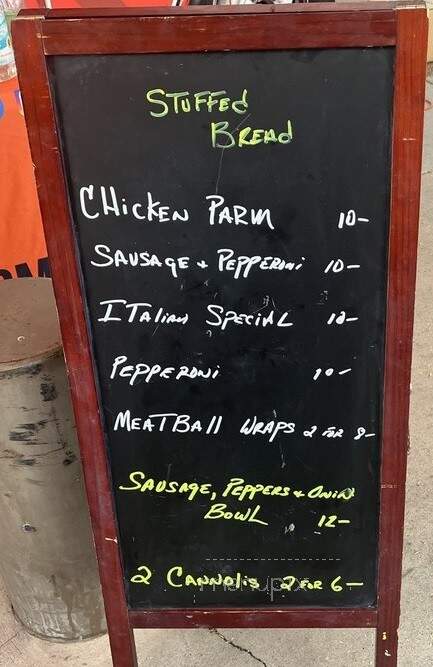 STUFFED
BREAD
CHICKEN PARM 10-
SAUSAGE + PEPPERONI 10-
ITALIAN SPECIAL 10-
PEPPERONI 10-
MEATBALL WRAPS 2 FOR 8-
SAUSAGE, PEPPERS + ONION
BOWL 12-
2 CANNOLIS 2 FOR 6-
menupix